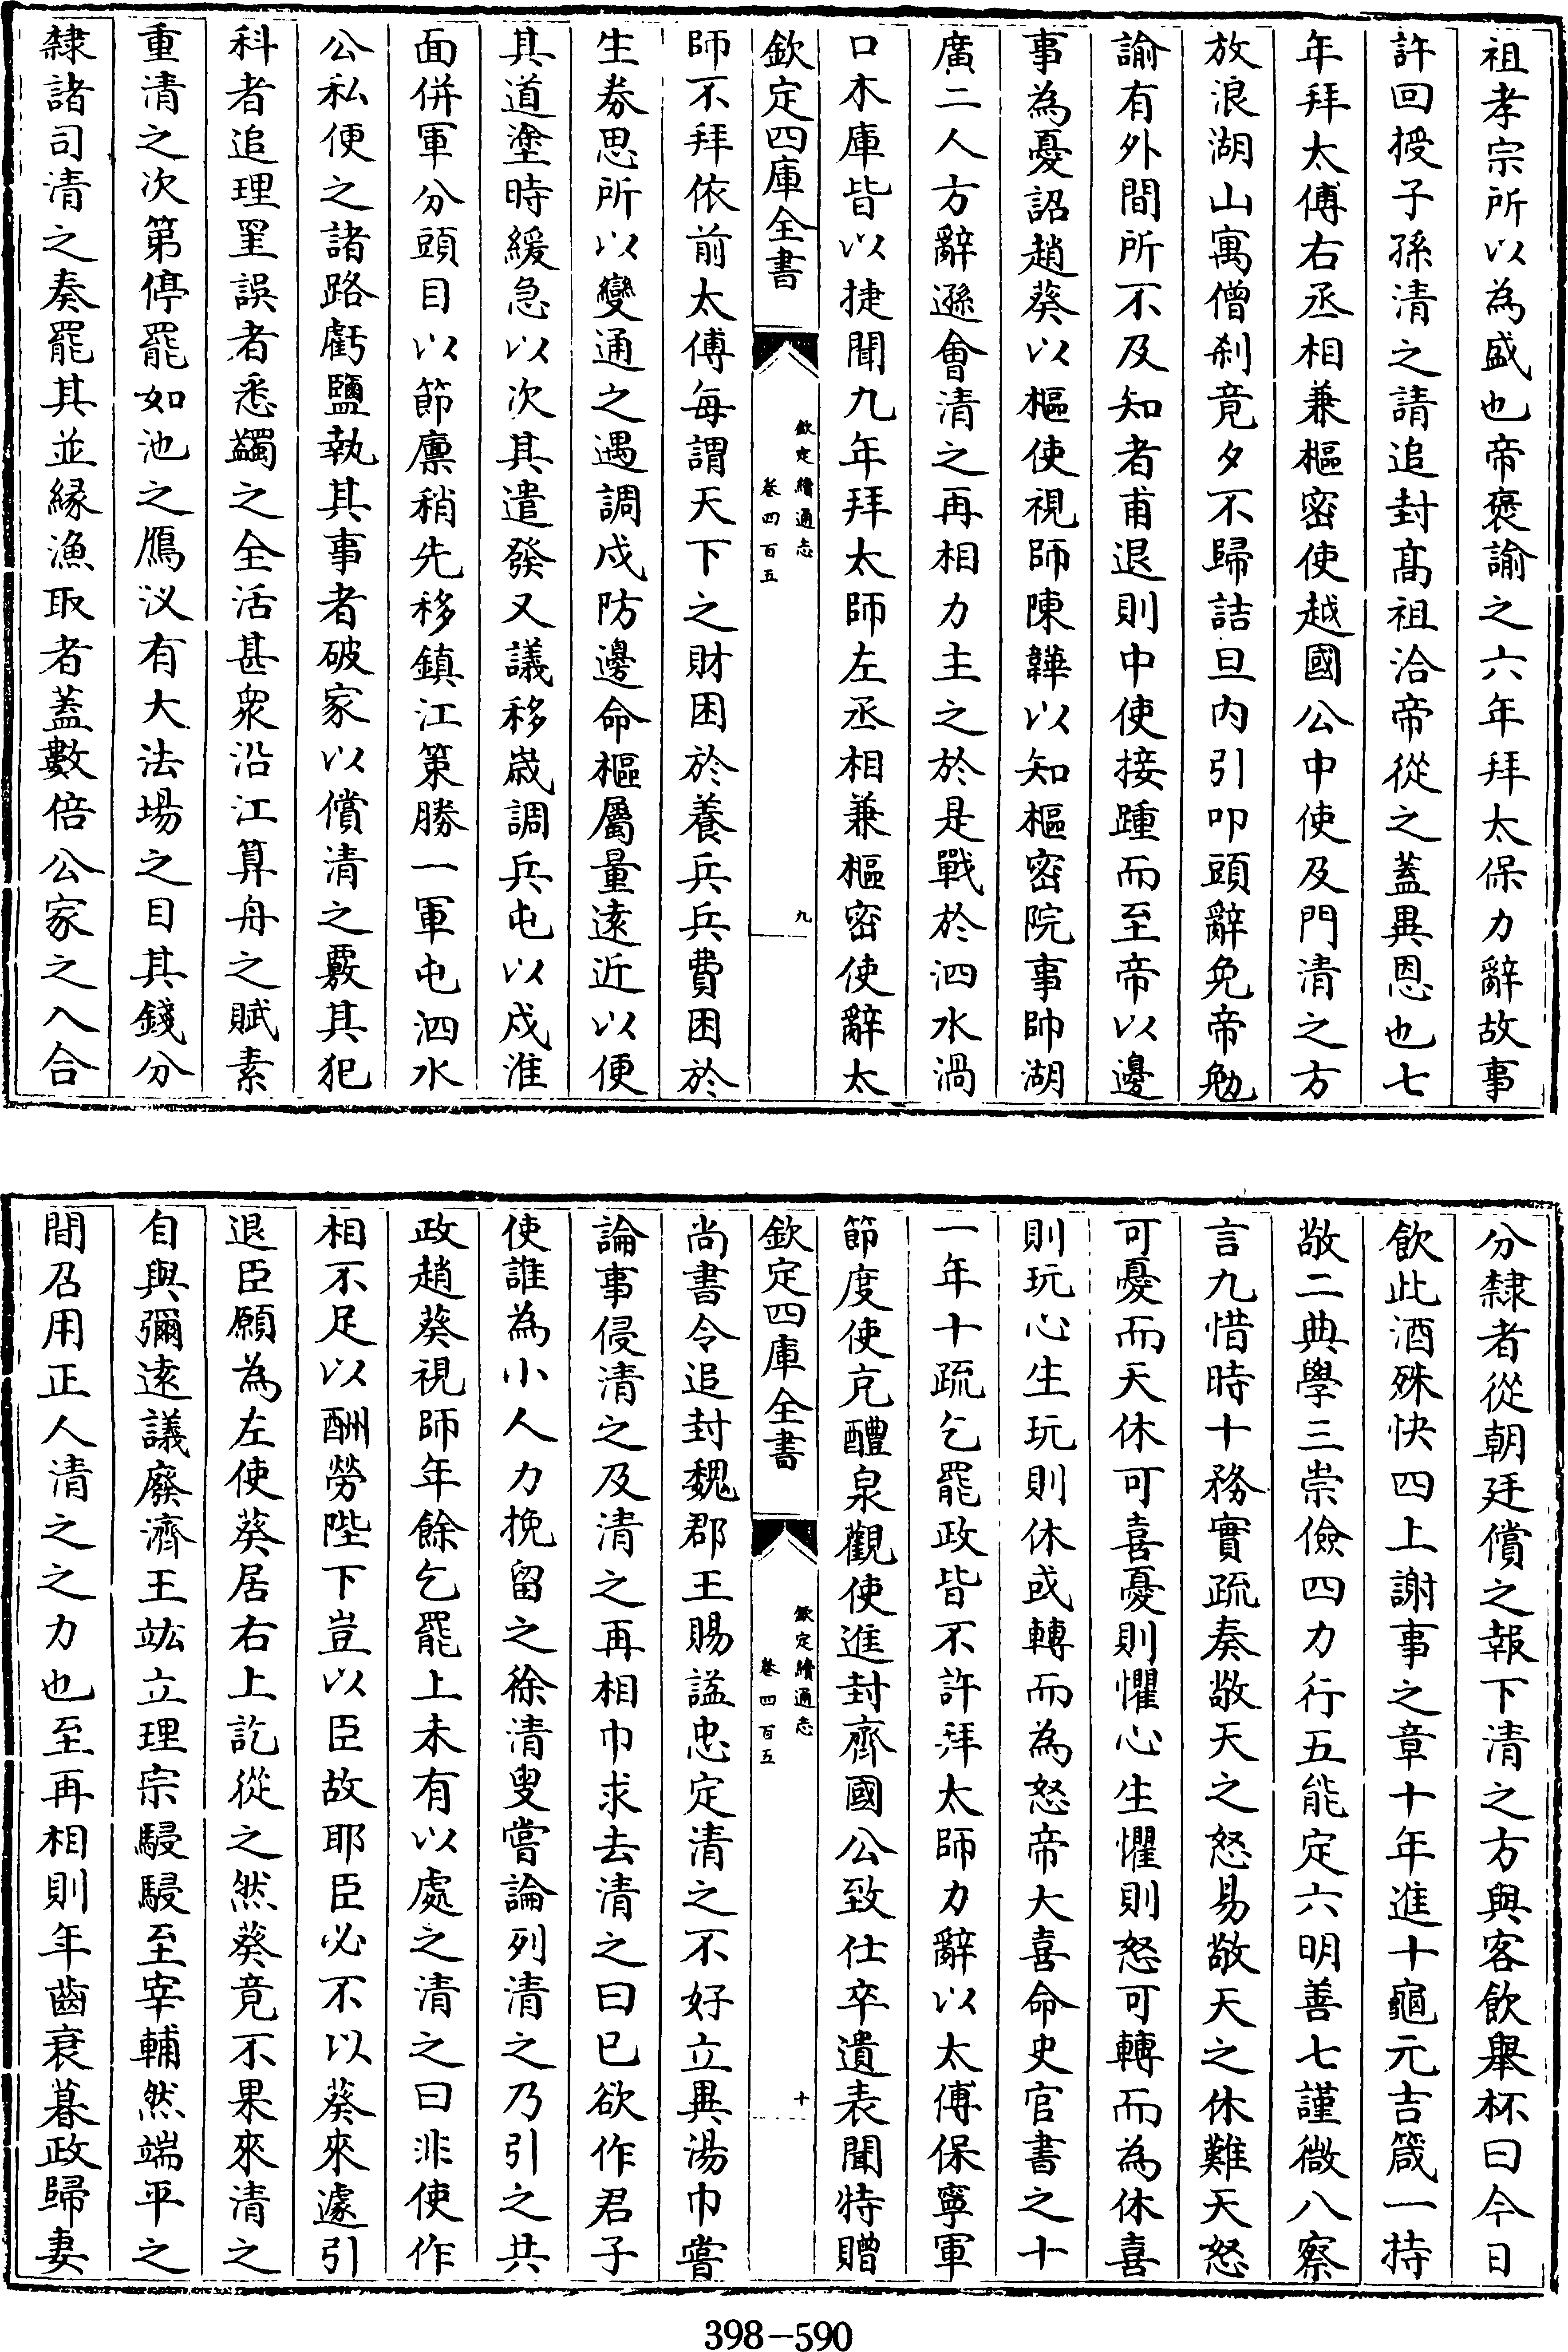 祖孝宗所以為盛也帝褒諭之六年拜太保力辭故事
許回授子孫清之請追封髙祖洽帝從之蓋異恩也七
年拜太傅右丞相兼樞密使越國公中使及門清之方
放浪湖山寓僧刹竟夕不歸詰旦内引叩頭辭免帝勉
諭有外間所不及知者甫退則中使接踵而至帝以邊
事為憂詔趙葵以樞使視師陳韡以知樞密院事帥湖
廣二人方辭遜會清之再相力主之於是戰於泗水渦
口木庫皆以捷聞九年拜太師左丞相兼樞密使辭太
欽定四庫全書
欽定續通志
卷四百五
九
師不拜依前太傅每謂天下之財困於養兵兵費困於
生劵思所以變通之遇調戍防邊命樞屬量逺近以便
其道塗時緩急以次其遣發又議移嵗調兵屯以戍淮
面併軍分頭目以節廪稍先移鎮江策勝一軍屯泗水
公私便之諸路虧鹽執其事者破家以償清之覈其犯
科者追理罣誤者悉蠲之全活甚衆沿江算舟之賦素
重清之次第停罷如池之鴈汊有大法場之目其錢分
隸諸司清之奏罷其並縁漁取者蓋數倍公家之入合
分隸者從朝廷償之報下清之方與客飲舉杯曰今日
飲此酒殊快四上謝事之章十年進十龜元吉箴一持
敬二典學三崇儉四力行五能定六明善七謹微八察
言九惜時十務實疏奏敬天之怒易敬天之休難天怒
可憂而天休可喜憂則懼心生懼則怒可轉而為休喜
則玩心生玩則休或轉而為怒帝大喜命史官書之十
一年十疏乞罷政皆不許拜太師力辭以太傅保寧軍
節度使充醴泉觀使進封齊國公致仕卒遺表聞特贈
欽定四庫全書
欽定續通志
卷四百五
十
尚書令追封魏郡王賜謚忠定清之不好立異湯巾嘗
論事侵清之及清之再相巾求去清之曰已欲作君子
使誰為小人力挽留之徐清叟嘗論列清之乃引之共
政趙葵視師年餘乞罷上未有以處之清之曰非使作
相不足以酬勞陛下豈以臣故耶臣必不以葵來遽引
退臣願為左使葵居右上訖從之然葵竟不果來清之
自與彌逺議廢濟王竑立理宗駸駸至宰輔然端平之
間召用正人清之之力也至再相則年齒衰暮政歸妻
398-590